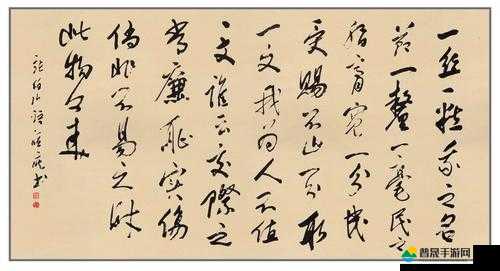 一丝一粒我之名
节一釐一毫民之
脂膏宽一分民
受赐不止一分取
一文我为人不值
一文谁云交际之
常廉耻实伤
倘非不义之财
此物何来
书
普晟手游网